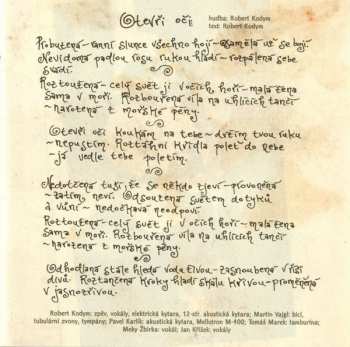 Otevři oči
hudba: Robert Kodym
text: Robert Kodym
Probuzena~ranní slunce všechno hojí~osamělá už se bojí.
Nevidoma padlou rosu rukou hladí~rozpálená sebe
svádí.
Roztoužená~celý svět jí v očích, hoří~malá žena
sama v moři. Rozbouřená víla na uhlících tančí
~narozená z mořské pěny.
Otevři oči koukám na tebe~držím tvou ruku
~nepustím. Roztáhni křídla poleť do nebe
~já vedle tebe poletím.
Nedotčená tuší, že se někdo zjeví~provoněná
~zatím, neví. Odsouzená světem dotyků
a vůní~nedočkavá neodpoví.
Roztoužená~celý svět jí v očích hoří~malá žena
sama v moři. Rozbouřená víla na uhlících tančí
~narozená z mořské pěny.
Odhodlaná stále hledá vodu živou~zasnoubená v říši
divů. Roztančená kroky hladí skálu křivou~proměněná
v jasnozřivou.
Robert Kodym: zpěv, vokály, elektrická kytara, 12-str. akustická kytara; Martin Vajgl: bicí,
tubulární zvony, tympány; Pavel Karlík: akustická kytara, Mellotron M-400; Tomáš Marek: tamburína;
Meky Žbirka: vokál; Jan Křížek: vokály